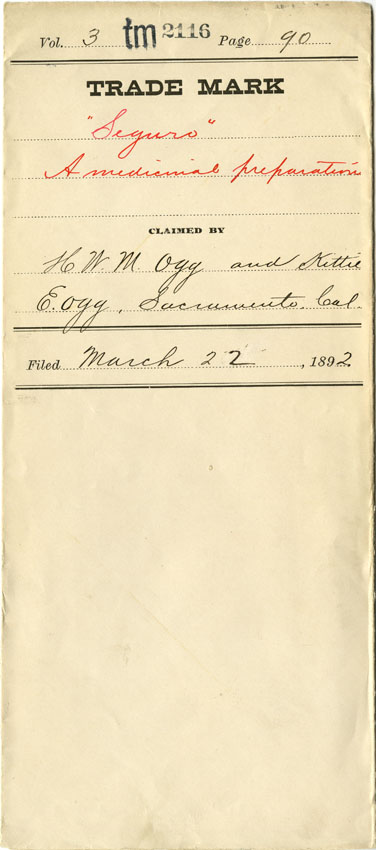 Vol. 3 tm 2116 Page 90
TRADE MARK
"Seguro"
A medicinal preparation
CLAIMED BY
H. W. M. Ogg and Kittie
E. Ogg, Sacramento, Cal.
Filed March 22, 1892